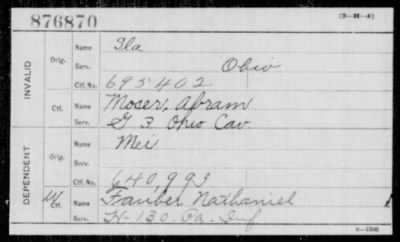 876870
(3-M-4)
INVALID
Orig.
Name Ila
Serv. Ohio
Ctf. No. 695402
Ctf.
Name Moser, Abram
Serv. G 3 Ohio Cav.
DEPENDENT
Orig.
Name Mei
Serv.
Ctf. No. 640,993
W Ctf.
Name Fauber Nathaniel
Serv. H-130. Pa. Inf
6-1380